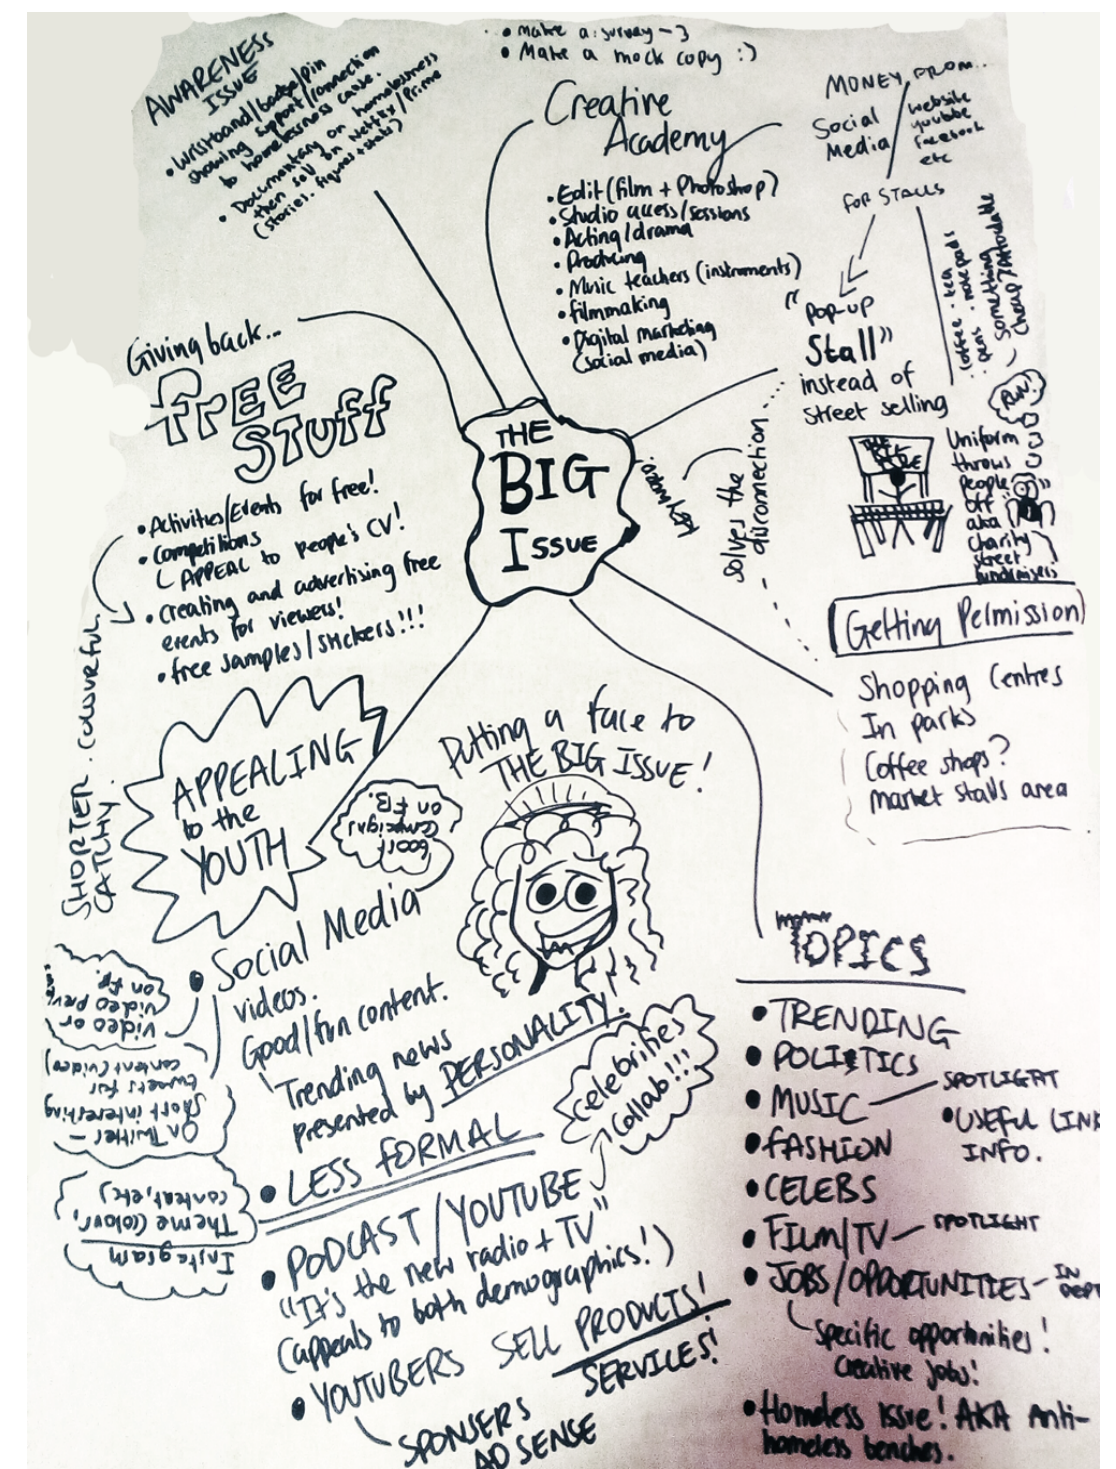 • Make a survey -
• Make a mock copy :)
AWARENESS
ISSUE
• Wristband/badge/pin
showing support/connection
to homelessness cause.
• Documentary on homelessness
then sell on Netflix/Prime
(stories. figures + stats)
Creative
Academy
• Edit (film + Photoshop)
• Studio access/sessions
• Acting/drama
• Producing
• Music teachers (instruments)
• filmmaking
• Digital marketing
(social media)
MONEY FROM..
Social
Media
website
youtube
facebook
etc
FOR STALLS
• coffee • tea
• pens • notepads
something
cheap/Affordable
"Pop-up
Stall"
instead of
street selling
RUN!
Uniform
throws
people
off
aka
charity
street
fundraisers
THE
BIG
ISSUE
solves the
disconnection
Giving back...
FREE
STUFF
• Activities/Events for free!
• Competitions
APPEAL to people's CV!
• Creating and advertising free
events for viewers!
• free samples/stickers!!!
THE
BIG
ISSUE
Getting Permission
Shopping Centres
In parks
Coffee shops?
market stalls area
SHORTER. COLOURFUL.
CATCHY.
APPEALING
to the
YOUTH
Putting a face to
THE BIG ISSUE!
boost
campaigns
on FB.
• Social Media
videos.
Good/fun content.
Trending news
presented by PERSONALITY!
video or
video prev
on FB.
On Twitter –
short interesting
tweets for
content (video)
Instagram
Theme (colour,
content, etc)
Celebrities
Collab!!!
• LESS FORMAL
• PODCAST/YOUTUBE
"It's the new radio + TV"
(appeals to both demographics!)
• YOUTUBERS SELL PRODUCTS!
SERVICES!
SPONSERS
AD SENSE
TOPICS
• TRENDING
• POLITICS
• MUSIC – SPOTLIGHT
• USEFUL LINK
INFO.
• FASHION
• CELEBS
• FILM/TV – SPOTLIGHT
• JOBS/OPPORTUNITIES – IN
DEPT
Specific opportunities!
Creative jobs!
• Homeless Issue! AKA Anti-
homeless benches.